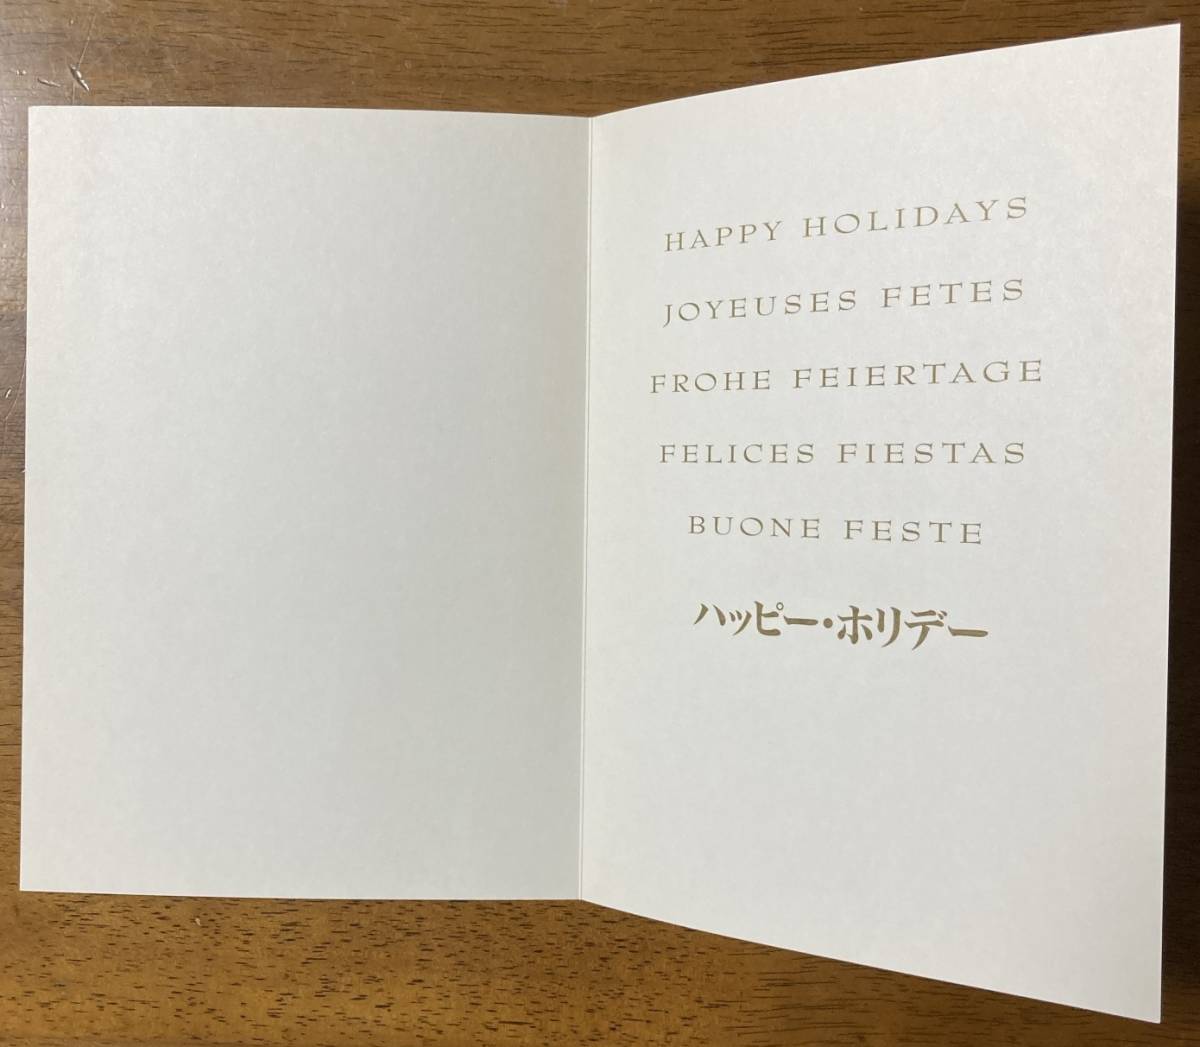 HAPPY HOLIDAYS
JOYEUSES FETES
FROHE FEIERTAGE
FELICES FIESTAS
BUONE FESTE
ハッピー・ホリデー